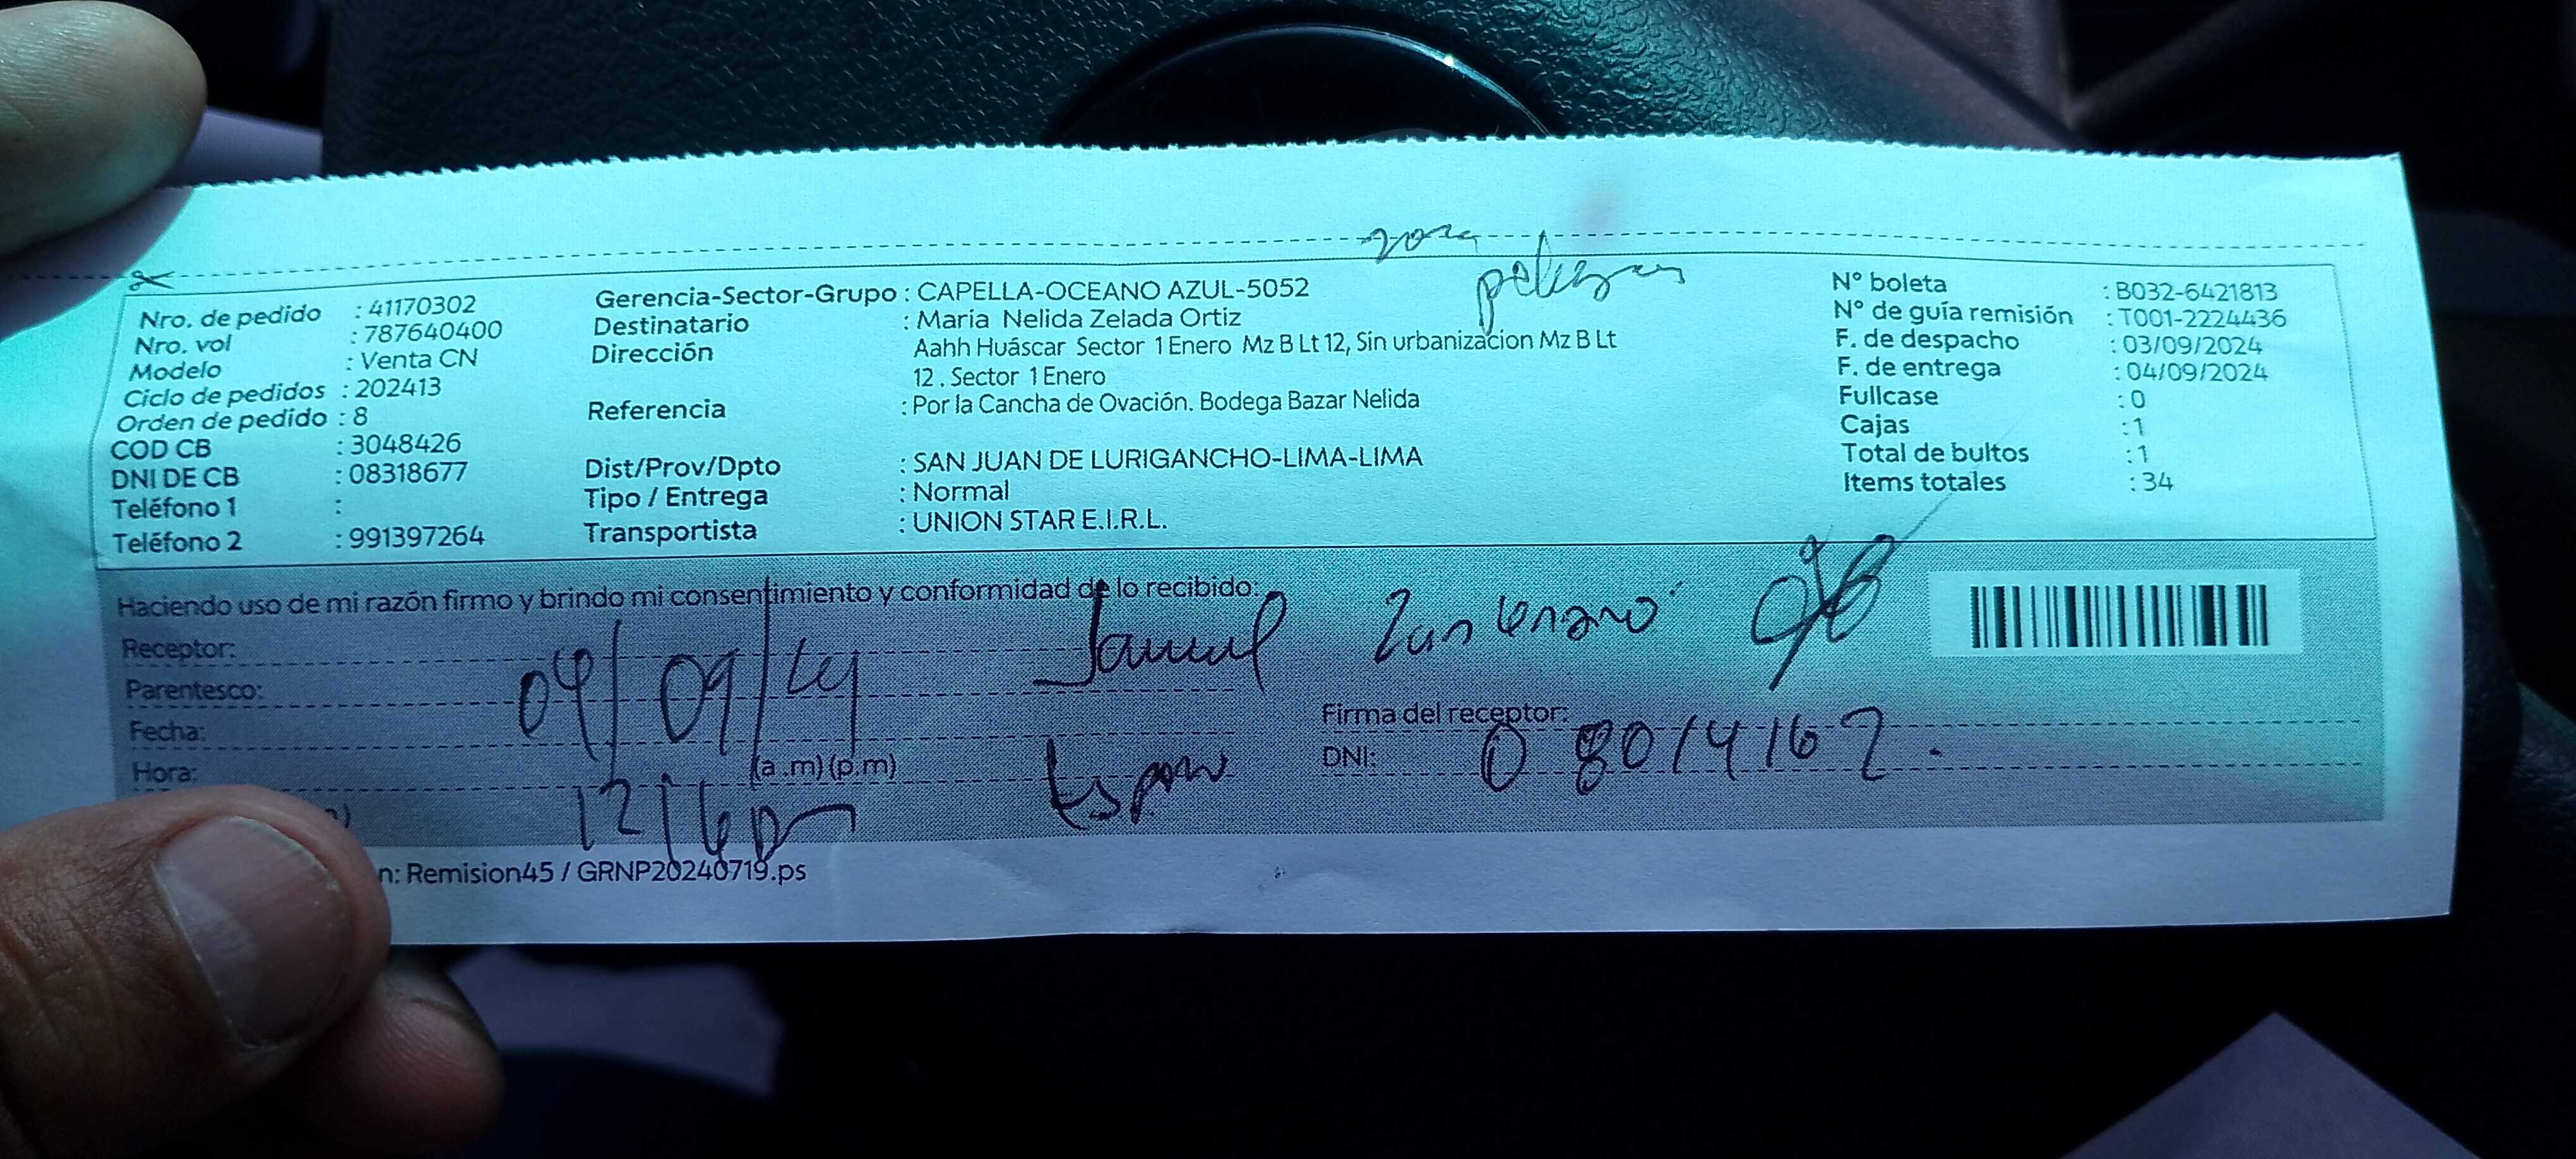 zona
peligrosa
Nro. de pedido : 41170302
Nro. vol : 787640400
Modelo : Venta CN
Ciclo de pedidos : 202413
Orden de pedido : 8
COD CB : 3048426
DNI DE CB : 08318677
Teléfono 1 :
Teléfono 2 : 991397264
Gerencia-Sector-Grupo : CAPELLA-OCEANO AZUL-5052
Destinatario : Maria Nelida Zelada Ortiz
Dirección Aahh Huáscar Sector 1 Enero Mz B Lt 12, Sin urbanizacion Mz B Lt
12 . Sector 1 Enero
Referencia : Por la Cancha de Ovación. Bodega Bazar Nelida
Dist/Prov/Dpto : SAN JUAN DE LURIGANCHO-LIMA-LIMA
Tipo / Entrega : Normal
Transportista : UNION STAR E.I.R.L.
N° boleta : B032-6421813
N° de guía remisión : T001-2224436
F. de despacho : 03/09/2024
F. de entrega : 04/09/2024
Fullcase : 0
Cajas : 1
Total de bultos : 1
Items totales : 34
Haciendo uso de mi razón firmo y brindo mi consentimiento y conformidad de lo recibido:
Receptor:
Parentesco:
Fecha: 04/09/24
Hora: (a.m) (p.m)
Firma del receptor:
DNI: 08014162.
n: Remision45 / GRNP20240719.ps